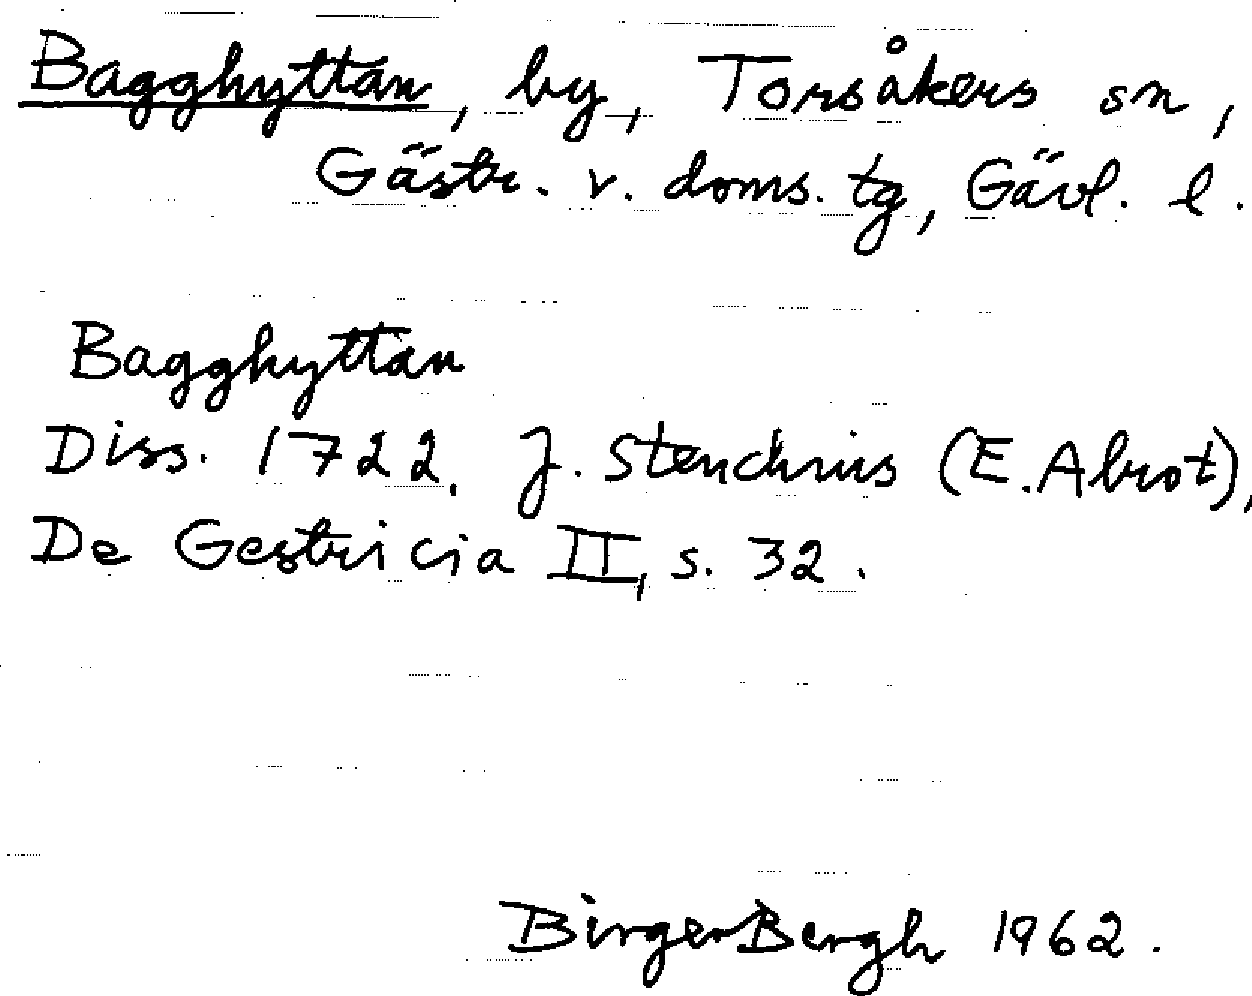 Bagghyttan, by, Torsåkers sn,
Gästr. v. doms. tg, Gävl. l.
Bagghyttan
Diss. 1722, J. Stenchnius (E. Alrot),
De Gestricia II, s. 32.
Birger Bergh 1962.